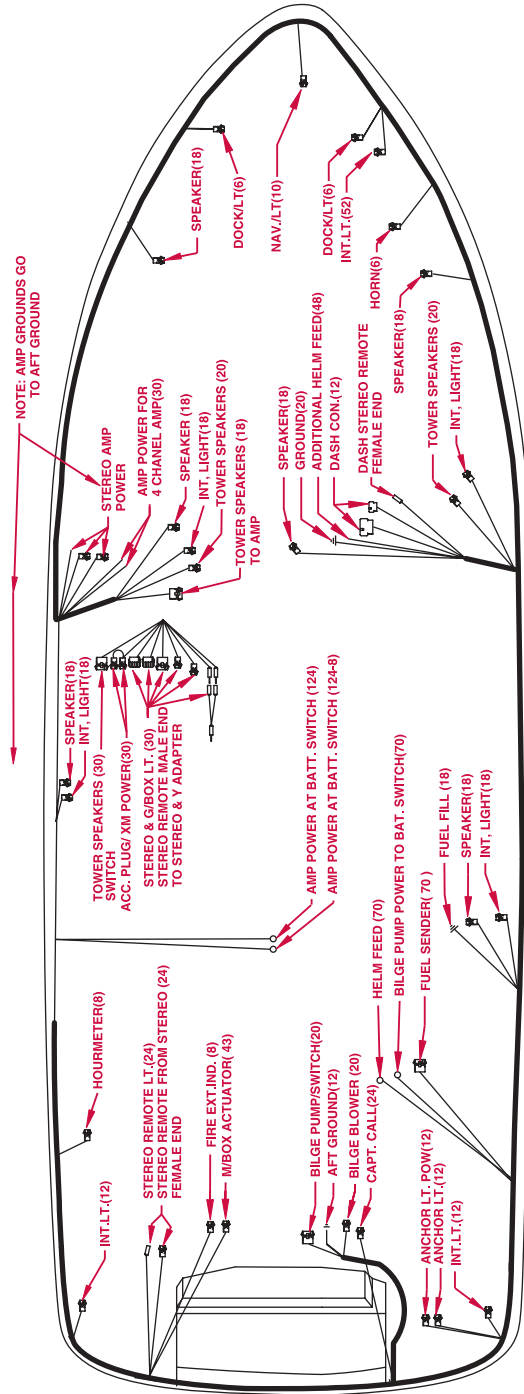 NOTE: AMP GROUNDS GO
TO AFT GROUND
SPEAKER(18)
DOCK/LT(6)
NAV./LT(10)
DOCK/LT(6)
INT.LT.(52)
HORN(6)
SPEAKER(18)
TOWER SPEAKERS (20)
INT, LIGHT(18)
STEREO AMP
POWER
AMP POWER FOR
4 CHANEL AMP(30)
SPEAKER (18)
INT, LIGHT(18)
TOWER SPEAKERS (20)
TOWER SPEAKERS (18)
TO AMP
SPEAKER(18)
GROUND(20)
ADDITIONAL HELM FEED(48)
DASH CON.(12)
DASH STEREO REMOTE
FEMALE END
SPEAKER(18)
INT, LIGHT(18)
TOWER SPEAKERS (30)
SWITCH
ACC. PLUG/ XM POWER(30)
STEREO & G/BOX LT. (30)
STEREO REMOTE MALE END
TO STEREO & Y ADAPTER
AMP POWER AT BATT. SWITCH (124)
AMP POWER AT BATT. SWITCH (124-8)
HELM FEED (70)
BILGE PUMP POWER TO BAT. SWITCH(70)
FUEL SENDER( 70 )
FUEL FILL (18)
SPEAKER(18)
INT, LIGHT(18)
HOURMETER(8)
INT.LT.(12)
STEREO REMOTE LT.(24)
STEREO REMOTE FROM STEREO (24)
FEMALE END
FIRE EXT.IND. (8)
M/BOX ACTUATOR( 43)
BILGE PUMP/SWITCH(20)
AFT GROUND(12)
BILGE BLOWER (20)
CAPT. CALL(24)
ANCHOR LT. POW(12)
ANCHOR LT.(12)
INT.LT.(12)